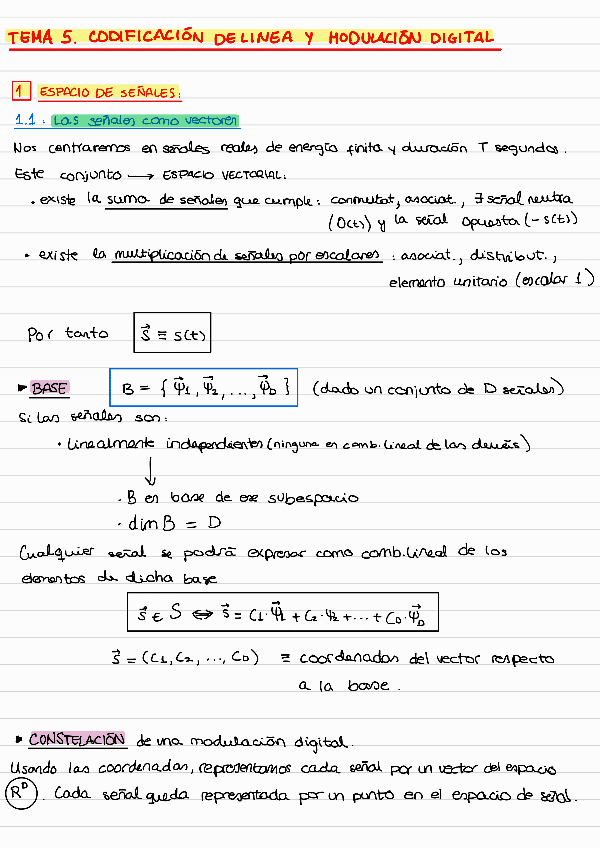 TEMA 5. CODIFICACIÓN DE LINEA Y MODULACIÓN DIGITAL
1 ESPACIO DE SEÑALES:
1.1: Las señales como vectores
Nos centraremos en señales reales de energía finita y duración T segundos.
Este conjunto → ESPACIO VECTORIAL:
· existe la suma de señales que cumple: conmutat, asociat., ∃ señal neutra
(0(t)) y la señal opuesta (-s(t))
· existe la multiplicación de señales por escalares : asociat., distribut.,
elemento unitario (escalar 1)
Por tanto s⃗ ≡ s(t)
► BASE B = { Ψ⃗1, Ψ⃗2, ..., Ψ⃗D } (dado un conjunto de D señales)
Si las señales son:
· Linealmente independientes (ninguna es comb. lineal de las demás)
↓
· B es base de ese subespacio
· dim B = D
Cualquier señal se podrá expresar como comb. lineal de los
elementos de dicha base
s⃗ ∈ S ⇔ s⃗ = C1·Ψ⃗1 + C2·Ψ2 + ... + CD·Ψ⃗D
s⃗ = (C1, C2, ..., CD) ≡ coordenadas del vector respecto
a la base.
► CONSTELACIÓN de una modulación digital.
Usando las coordenadas, representamos cada señal por un vector del espacio
R^D. Cada señal queda representada por un punto en el espacio de señal.